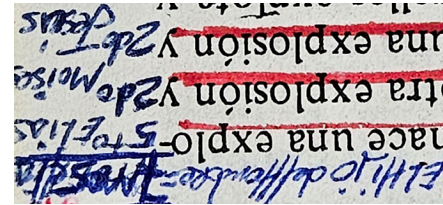 El Hijo del Hombre=
hace una explo- 5to Elias
otra explosión y 2do Moises
una explosión y 2do Jesus